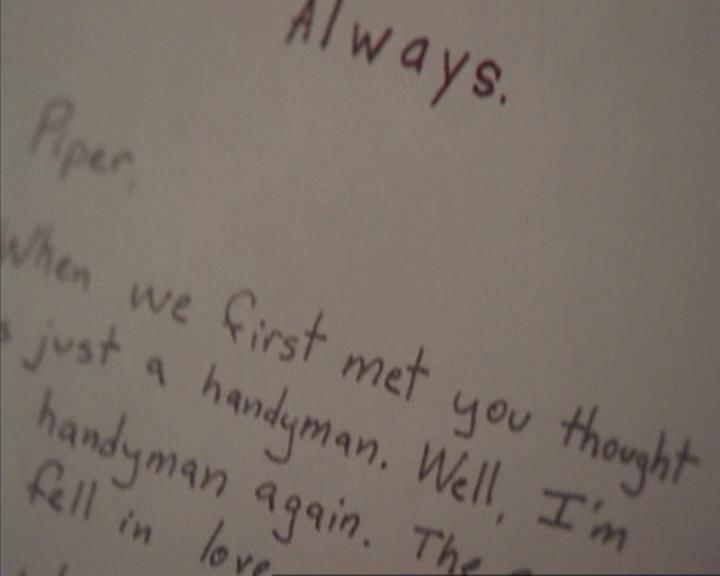 Always.
Piper,
When we first met you thought
just a handyman. Well, I'm
handyman again. The
fell in love